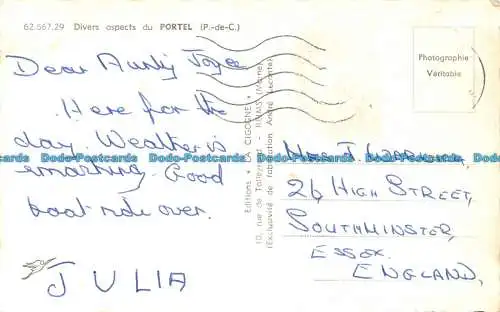 62.667.29 Divers aspects du PORTEL (P.-de-C.)
Dear Aunty Joyce
Here for the
day. Weather is
smashing. Good
boat ride over.
JULIA
Editions LA CIGOGNE
10, rue de Talleyrand - REIMS (Marne)
(Exclusivité de fabrication André Leconte)
Photographie
Véritable
26 HIGH STREET,
SOUTHMINSTER,
ESSEX.
ENGLAND,
Dodo-Postcards Dodo-Postcards Dodo-Postcards Dodo-Postcards Dodo-Postcards